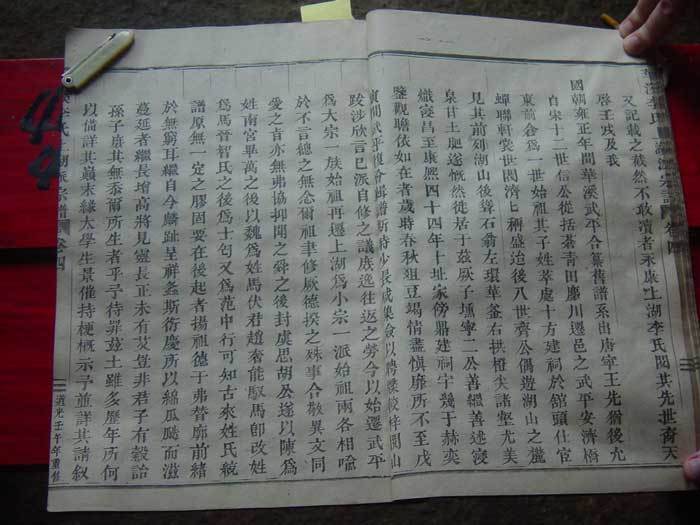 又記載之截然不敢瀆者永康上湖李氏閥其先世裔天
啓壬戌及我
國朝雍正年間華溪武平合纂舊譜系出唐寧王先猶後允
自宋十二世信公從括蒼青田麗川遷邑之武平安濟梧
東前倉爲一世始祖其子姓萃處十方建祠於館頭仕宦
蟬聯軒裳世閥濟匕稱盛迨後八世齊公偶遊湖山之麓
見其前列湖山後聳石翁左環華釜右拱橙尖諸壑尤美
泉甘土肥遂慨然徙居于茲厥子壎寧二公善繼善述寖
熾寖昌至康熙四十四年十址家傍鼎建祠宇幾于赫奕
鑒觀瞻依如在者歲時春秋俎豆竭情盡愼靡所不至戊
跋涉欣言已派自修之議庶逸往返之勞今以始遷武平
爲大宗一族始祖再遷上湖爲小宗一派始祖兩各相喩
於不言總之無念爾祖聿修厥德揆之殊事合敬異文同
愛之旨亦無弗協抑聞之舜之後封虞思胡公遂以陳爲
姓南宮畢萬之後以魏爲姓馬伏君趙奢能馭馬卽改姓
爲馬晉智氏之後爲士匄又爲范中行可知古來姓氏統
譜原無一定之膠固要在後起者揚祖德于弗替廓前緒
於無窮耳繼自今麟趾呈祥螽斯衍慶所以綿瓜瓞而滋
蔓延者繼長增高將見靈長正未有艾豈非君子有穀詒
孫子庶其無忝爾所生者乎予待罪茲土雖多歷年所何
以備詳其顚末緣大學生景催持梗槪示予並詳其請叙
湖派宗譜 卷四
道光壬午年重修